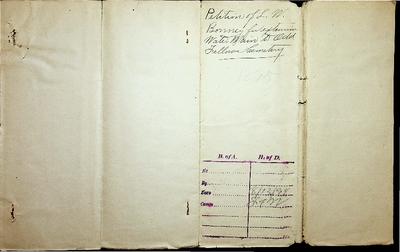 Petition of L. W.
Bonney for extension
Water Main to Odd
Fellows Cemetery
B. of A. H. of D.
No
By
Date
Comm